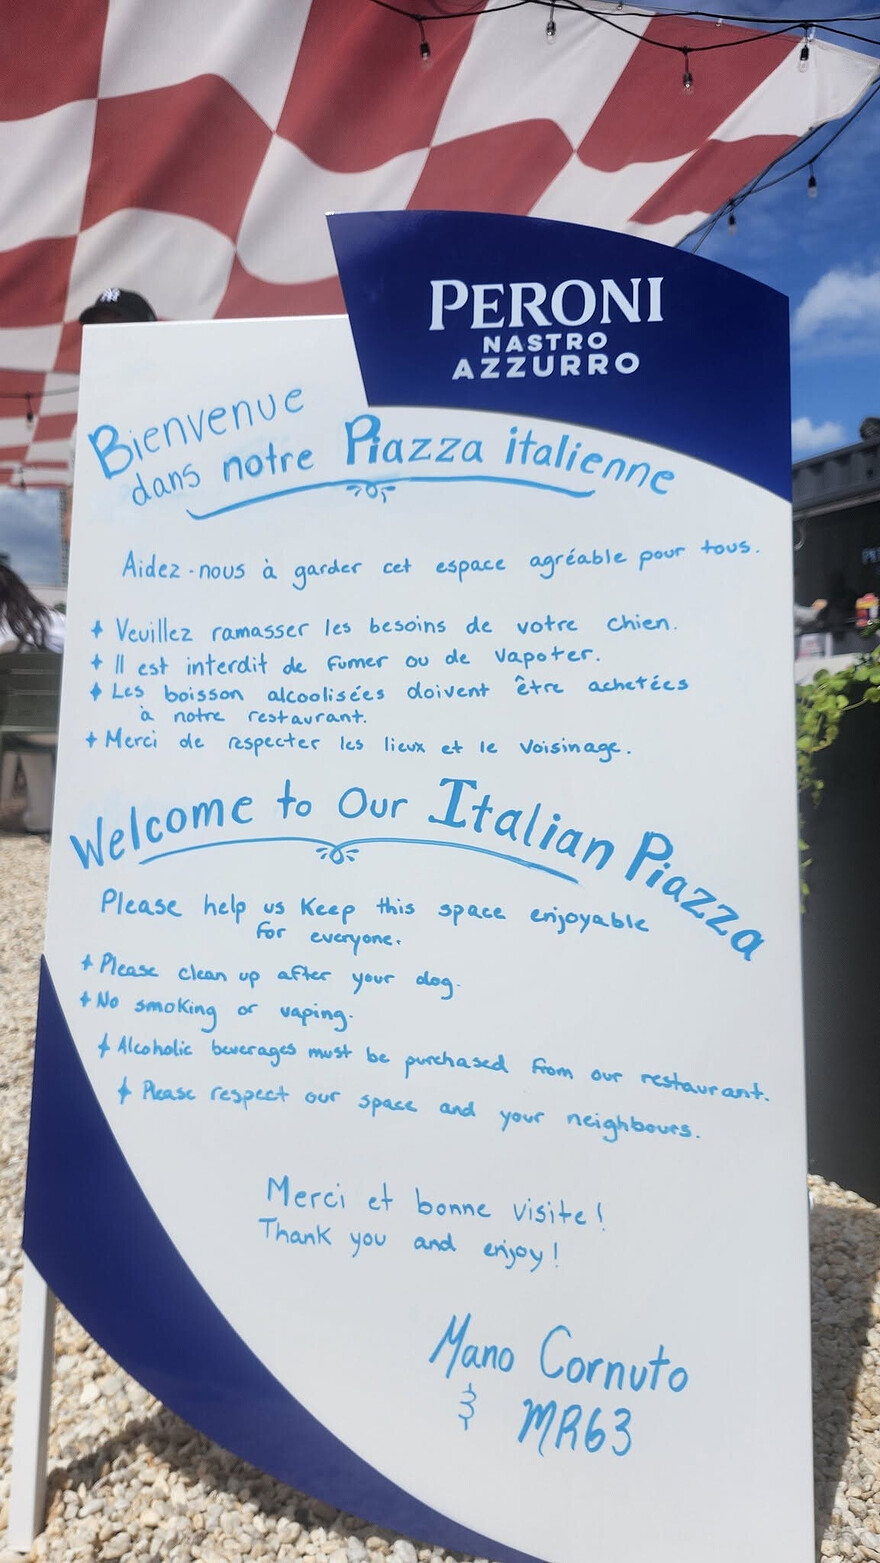 PERONI
NASTRO
AZZURRO
Bienvenue
dans notre Piazza italienne
Aidez-nous à garder cet espace agréable pour tous.
+ Veuillez ramasser les besoins de votre chien.
+ Il est interdit de fumer ou de vapoter.
+ Les boisson alcoolisées doivent être achetées
à notre restaurant.
+ Merci de respecter les lieux et le voisinage.
Welcome to Our Italian Piazza
Please help us keep this space enjoyable
for everyone.
+ Please clean up after your dog.
+ No smoking or vaping.
+ Alcoholic beverages must be purchased from our restaurant.
+ Please respect our space and your neighbours.
Merci et bonne visite!
Thank you and enjoy!
Mano Cornuto
& MR63